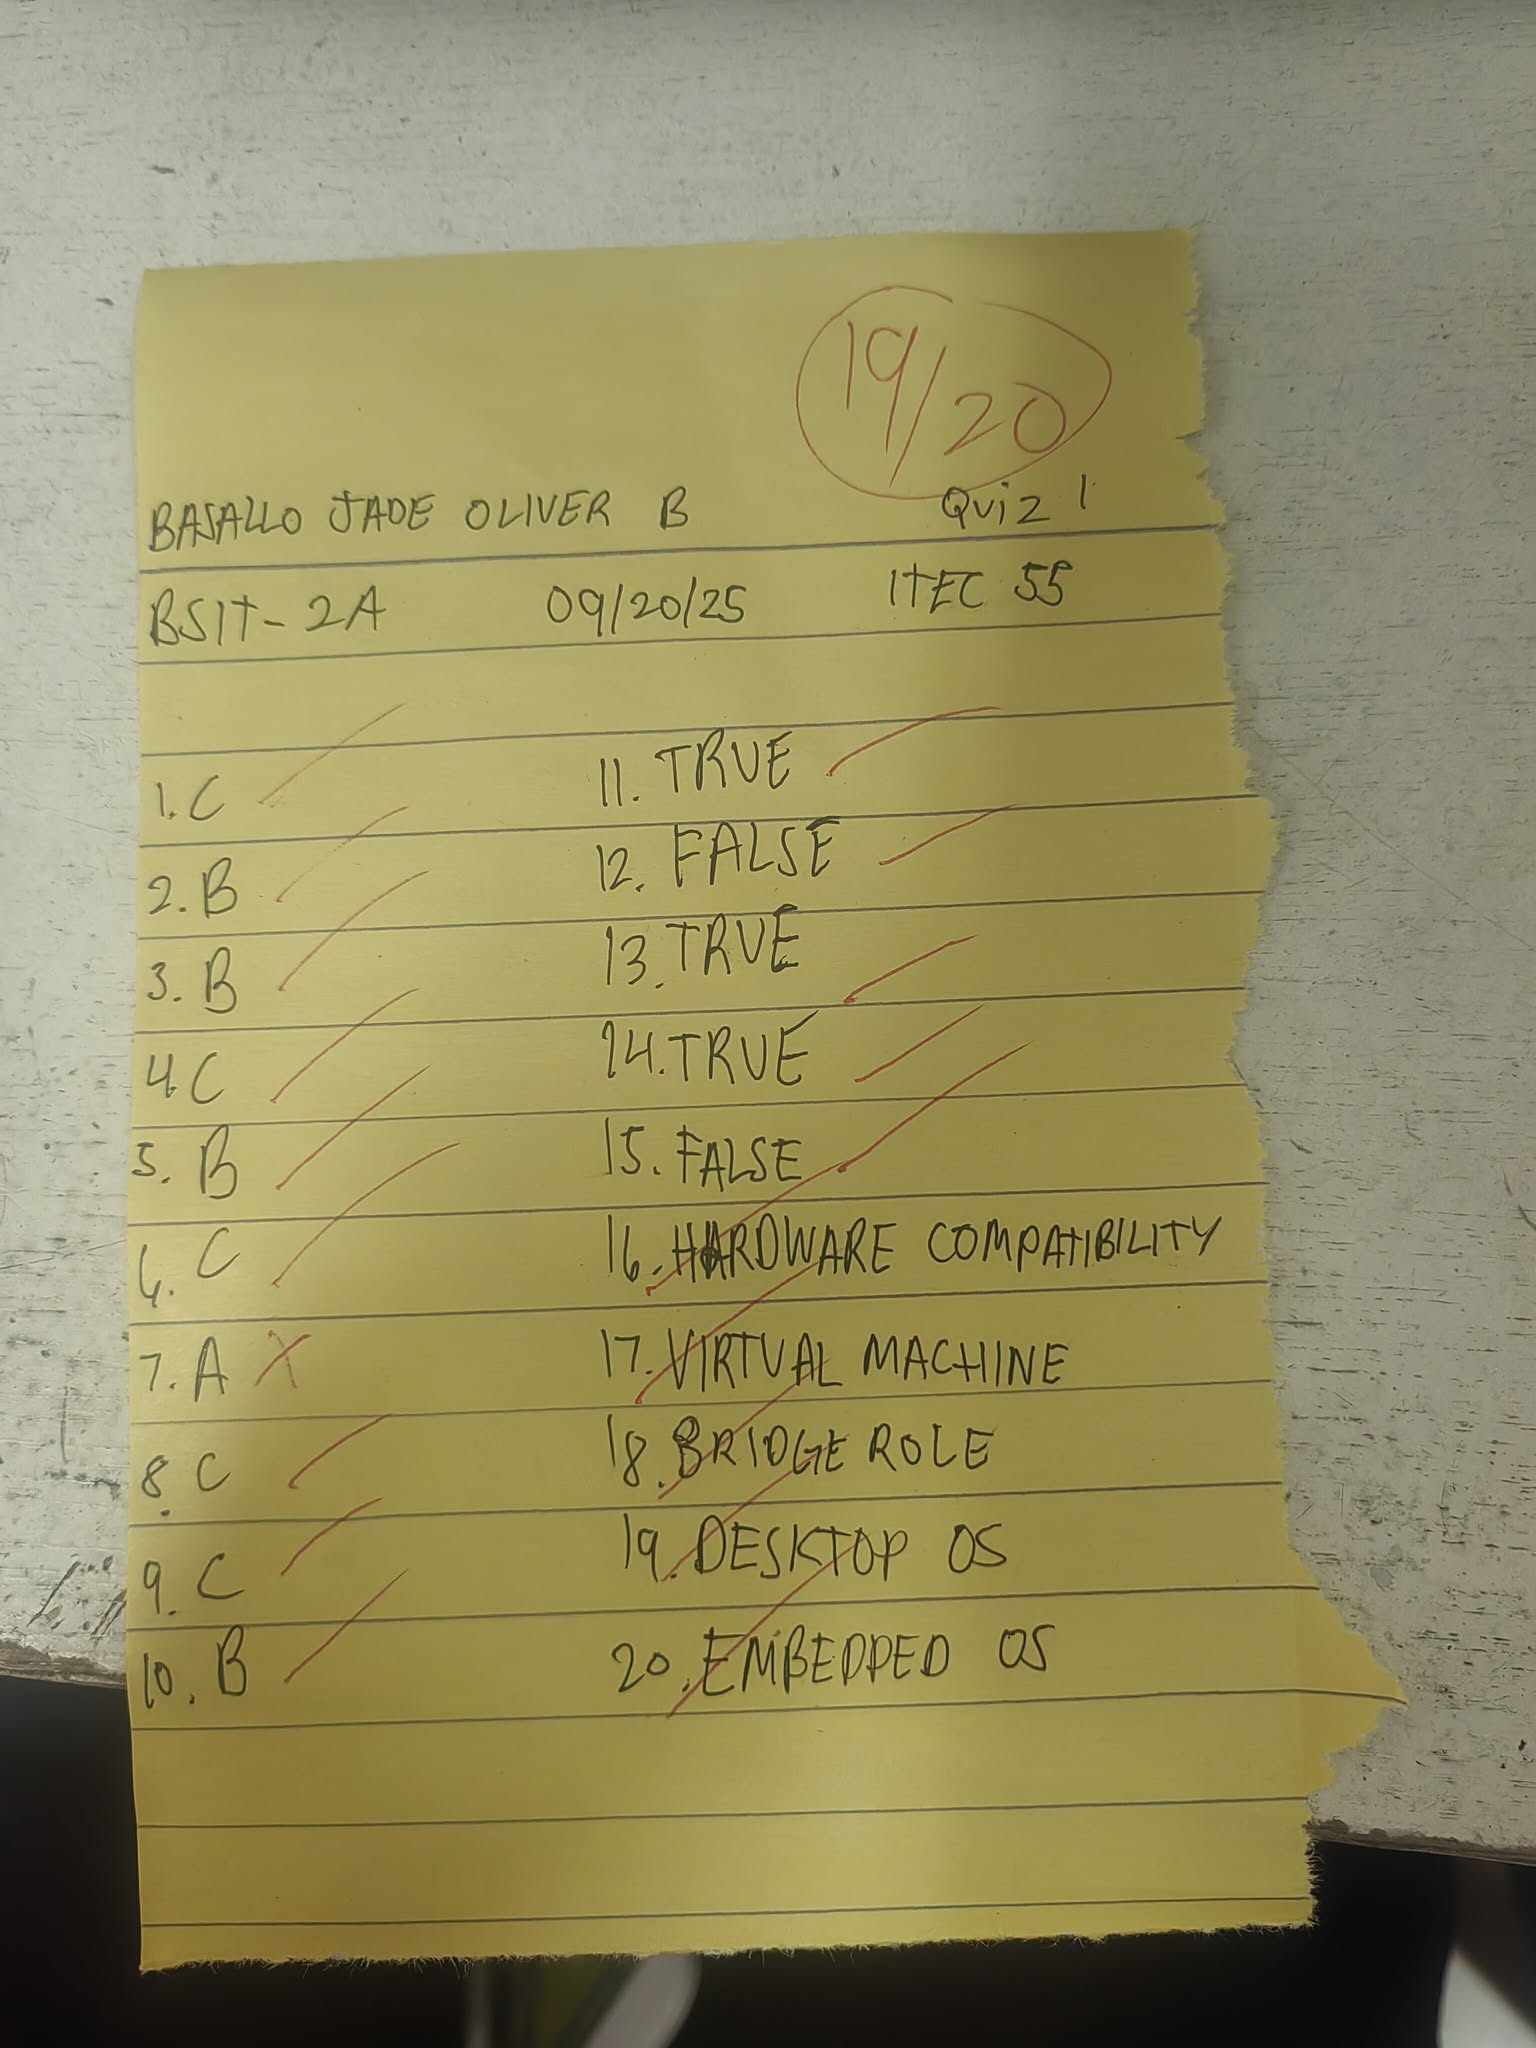 19/20
BASALLO JADE OLIVER B Quiz 1
BSIT-2A 09/20/25 ITEC 55
1. C
2. B
3. B
4. C
5. B
6. C
7. A X
8. C
9. C
10. B
11. TRUE
12. FALSE
13. TRUE
14. TRUE
15. FALSE
16. HARDWARE COMPATIBILITY
17. VIRTUAL MACHINE
18. BRIDGE ROLE
19. DESKTOP OS
20. EMBEDDED OS